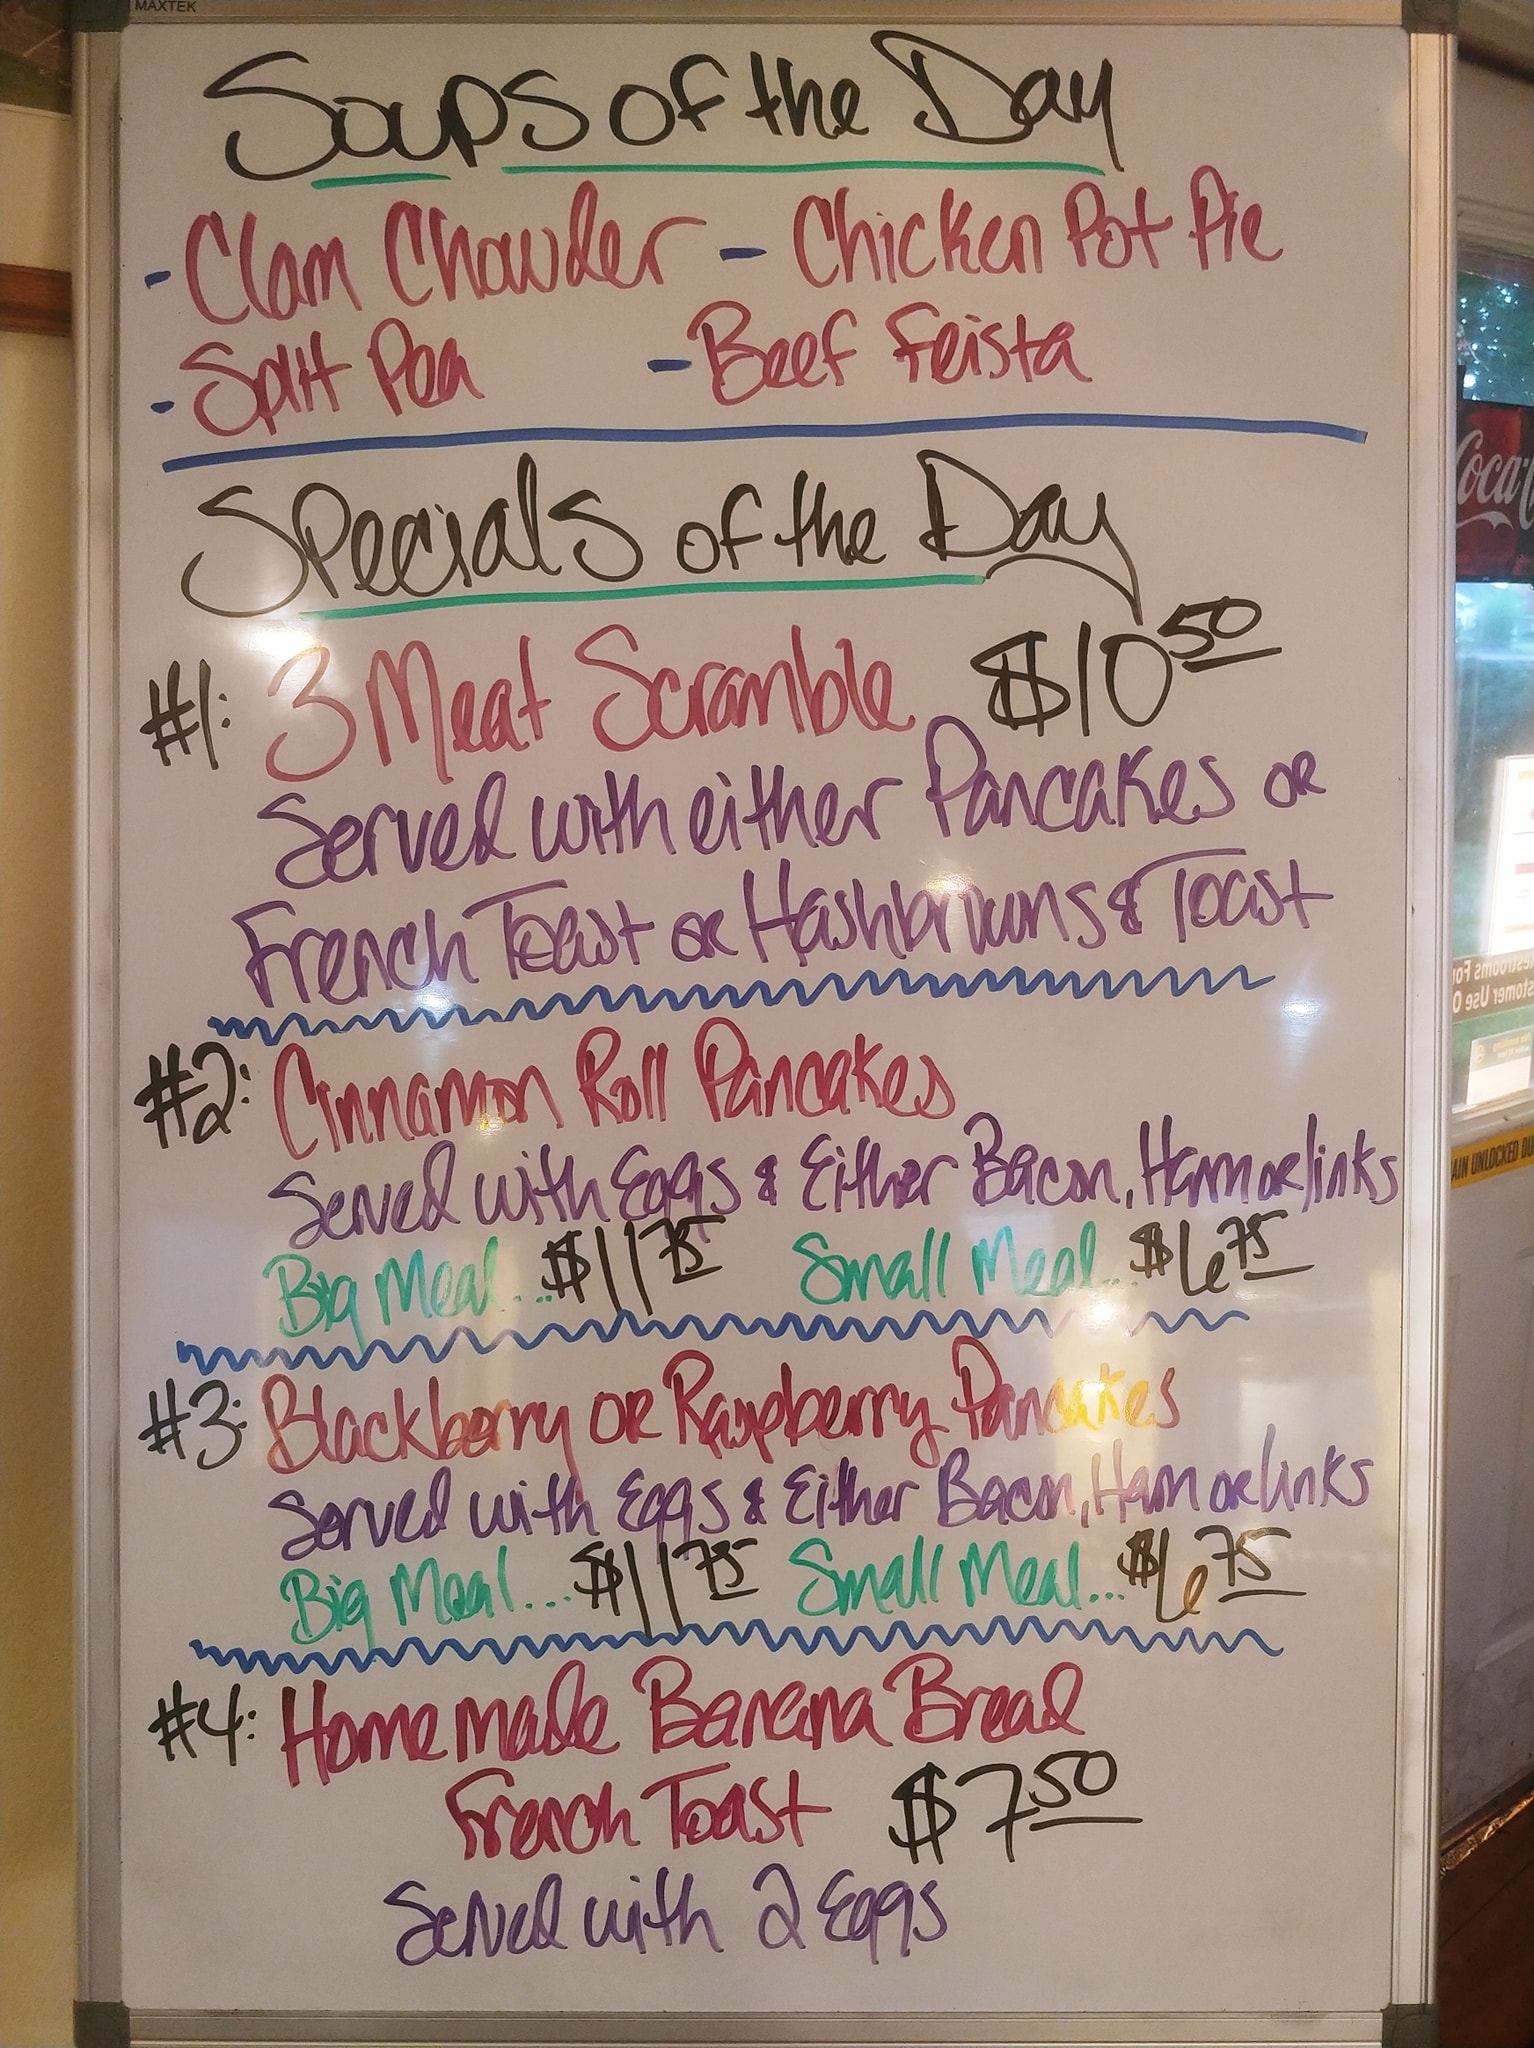 MAXTEK
Soups of the Day
- Clam Chowder - Chicken Pot Pie
- Split Pea - Beef Feista
Specials of the Day
#1: 3 Meat Scramble $10.50
Served with either Pancakes or
French Toast or Hashbrowns & Toast
#2: Cinnamon Roll Pancakes
Served with Eggs & Either Bacon, Ham or links
Big Meal... $11.75 Small Meal... $6.75
#3: Blackberry or Raspberry Pancakes
Served with Eggs & Either Bacon, Ham or links
Big Meal... $11.75 Small Meal... $6.75
#4: Homemade Banana Bread
French Toast $7.50
Served with 2 Eggs
Coca-C
estrooms For
stomer Use O
AIN UNLOCKED DU